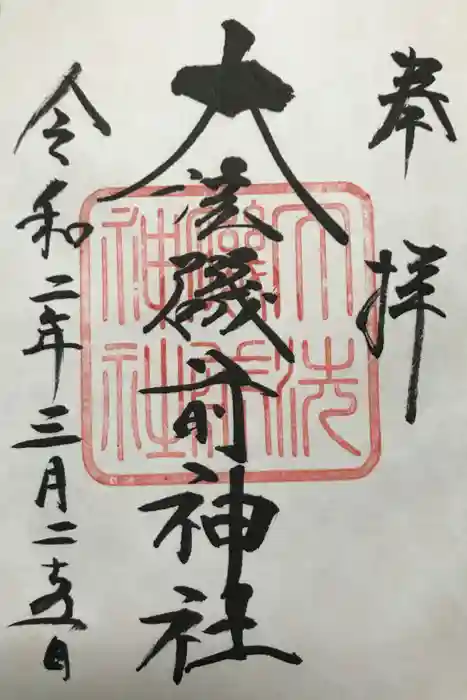 奉拝
大洗磯前神社
令和二年三月二十五日
大洗
磯前
神社